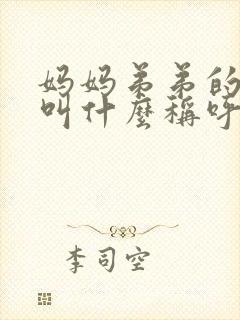 妈妈弟弟的
叫什麽稱呼
李司空